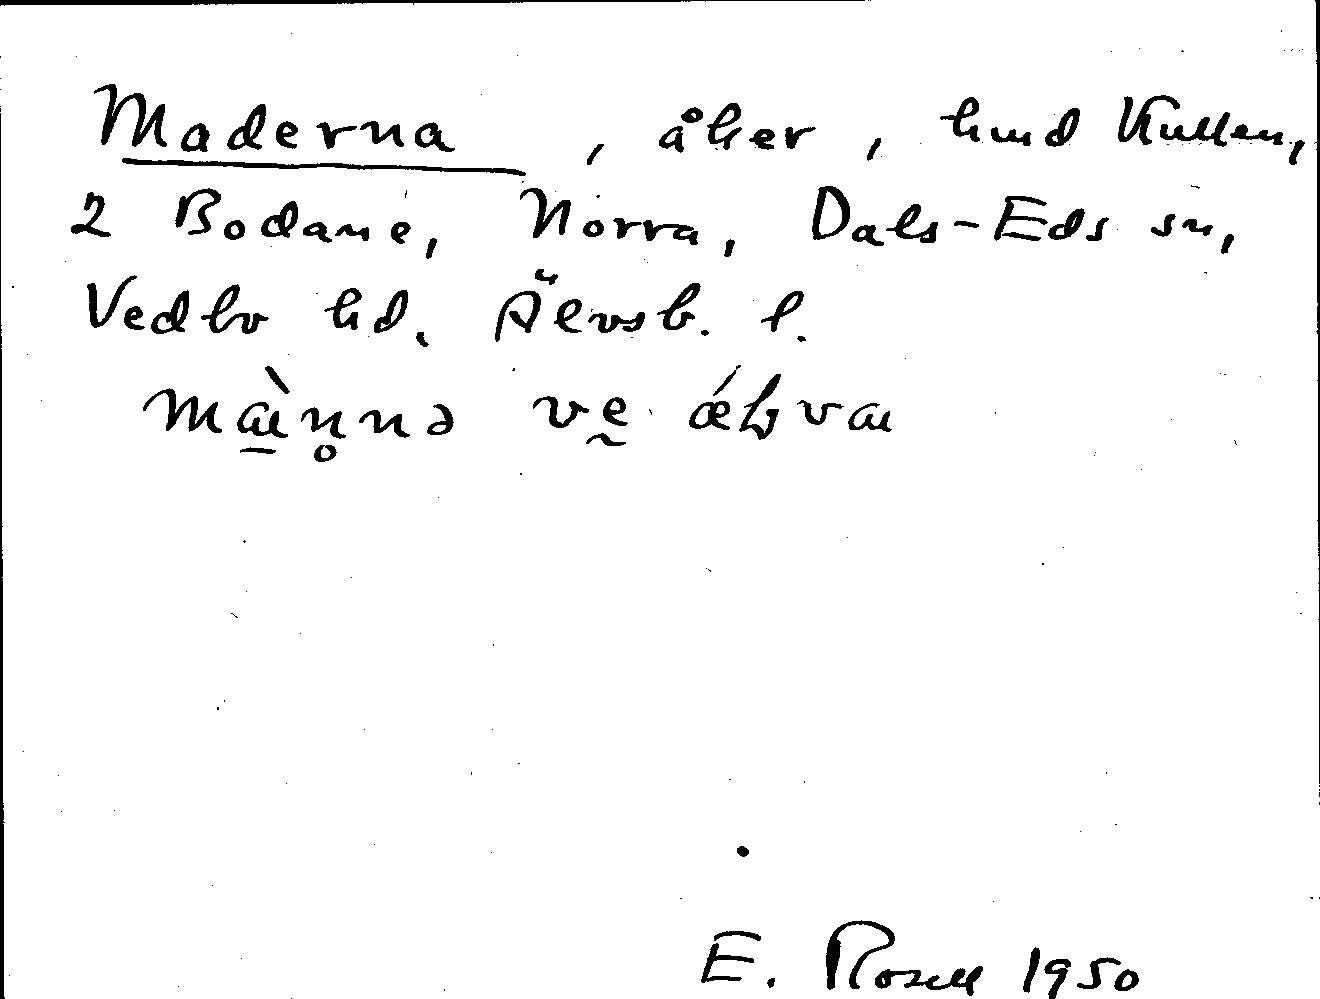 Maderna, åker, hmd Kullen,
2 Bodane, Norra, Dals-Eds sn,
Vedbo hd. Älvsb. l.
E. Rosell 1950